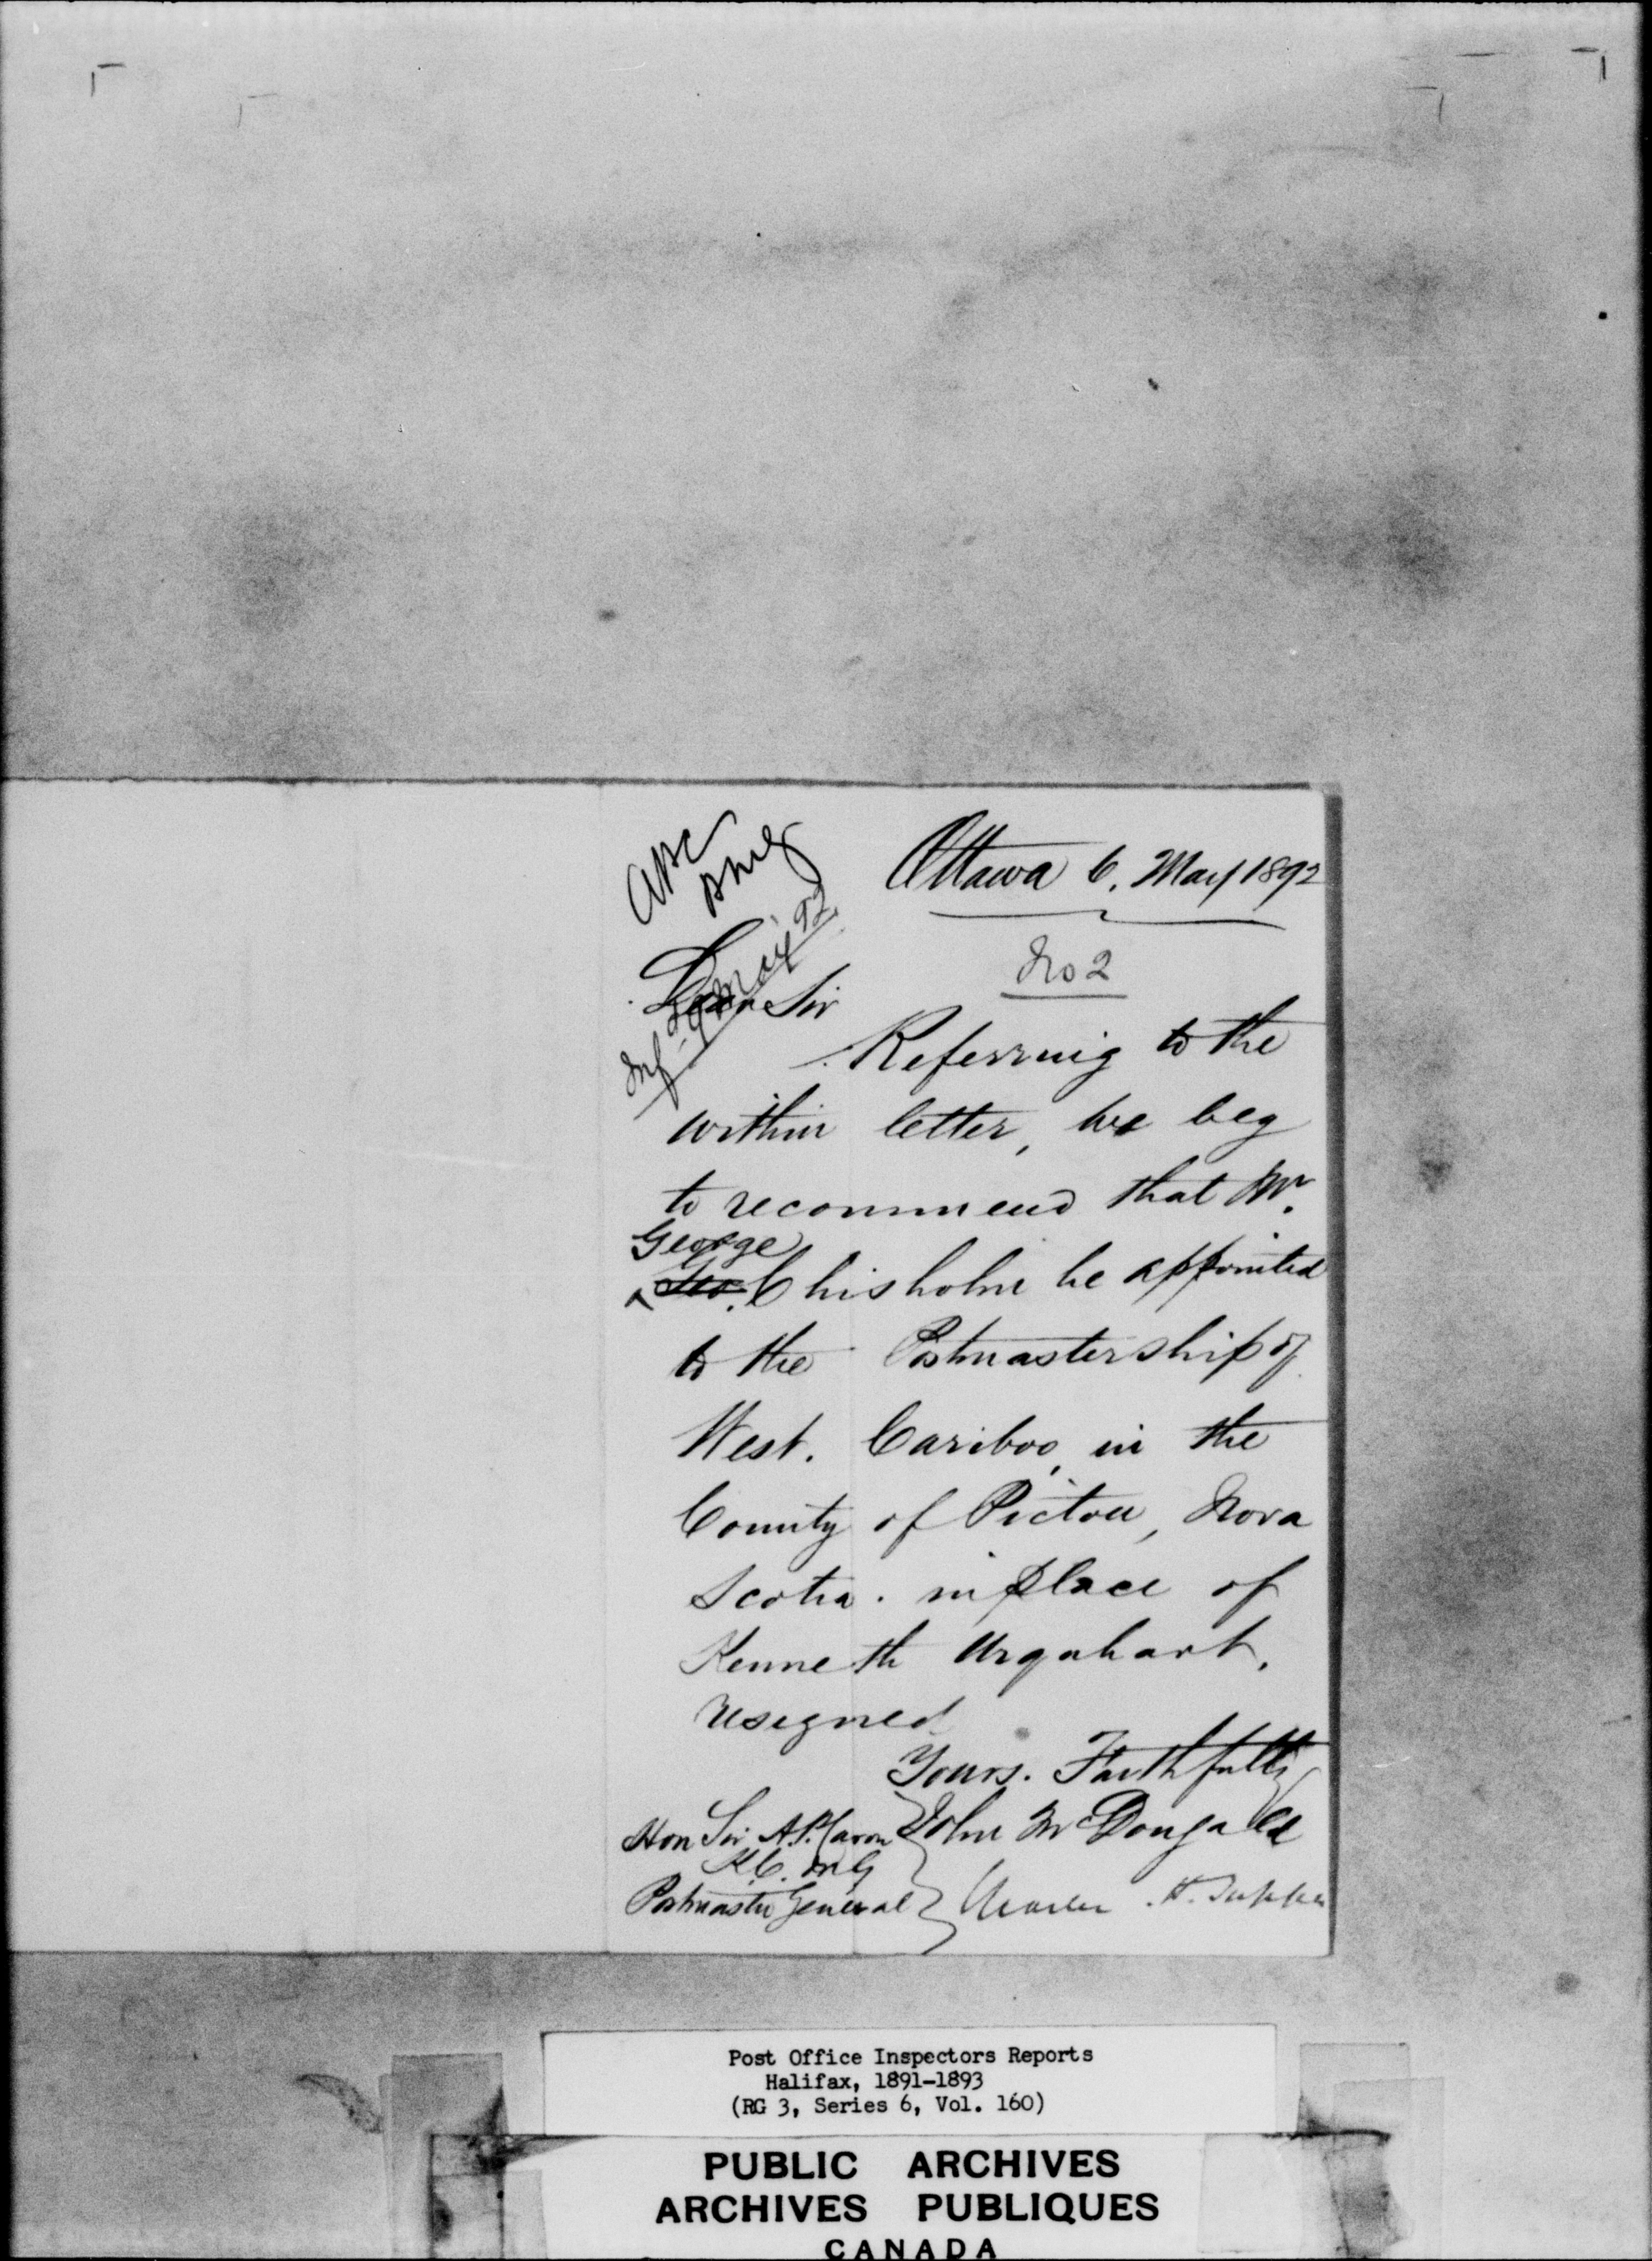 Ottawa 6, May 1892
No 2
Dear Sir
Referring to the
within letter, we beg
to recommend that Mr.
George
Geo. Chisholm be appointed
to the Postmastership of
West. Cariboo, in the
County of Pictou, Nova
Scotia. in place of
Kenneth Urquhart,
resigned
Yours. Faithfully
John McDougald
Charles H. Tupper
Hon Sir A.P. Caron
K.C.M.G
Postmaster General
Post Office Inspectors Reports
Halifax, 1891-1893
(RG 3, Series 6, Vol. 160)
PUBLIC ARCHIVES
ARCHIVES PUBLIQUES
CANADA